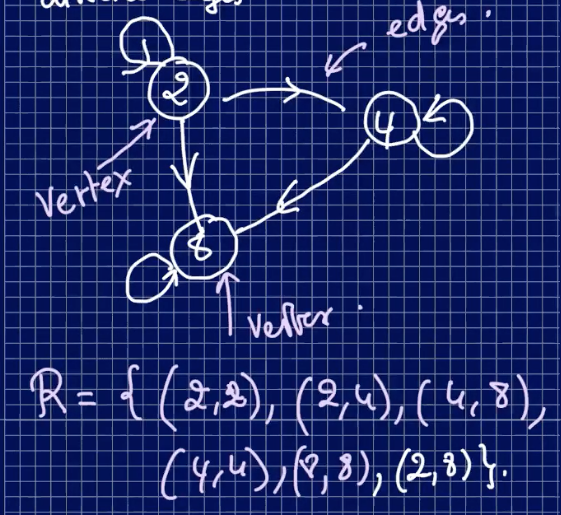 edges.
2
4
Vertex
8
Vertex.
R = { (2,2), (2,4), (4,8),
(4,4), (8,8), (2,8) }.